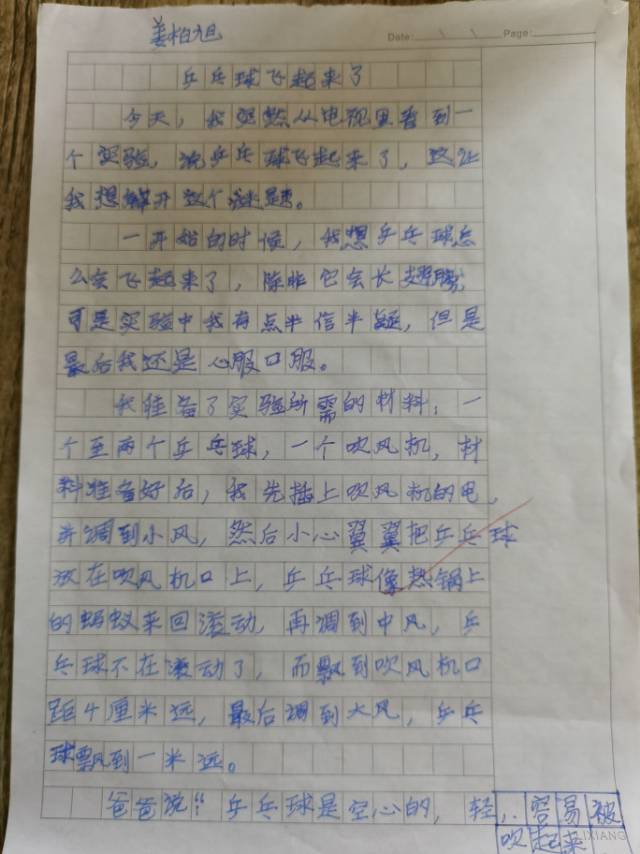 姜柏旭
Date: \ \ Page:
乒乓球飞起来了
今天，我突然从电视里看到一
个实验，说乒乓球飞起来了，这让
我想解开这个谜题。
一开始的时候，我想乒乓球怎
么会飞起来了，除非它会长翅膀，
可是实验中我有点半信半疑，但是
最后我还是心服口服。
我准备了实验所需的材料：一
个至两个乒乓球，一个吹风机，材
料准备好后，我先插上吹风机的电，
并调到小风，然后小心翼翼把乒乓球
放在吹风机口上，乒乓球像热锅上
的蚂蚁来回滚动，再调到中风，乒
乓球不在滚动了，而飘到吹风机口
距4厘米远，最后调到大风，乒乓
球飘到一米远。
爸爸说“乒乓球是空心的，轻，容易被
吹起来
LIXIANG